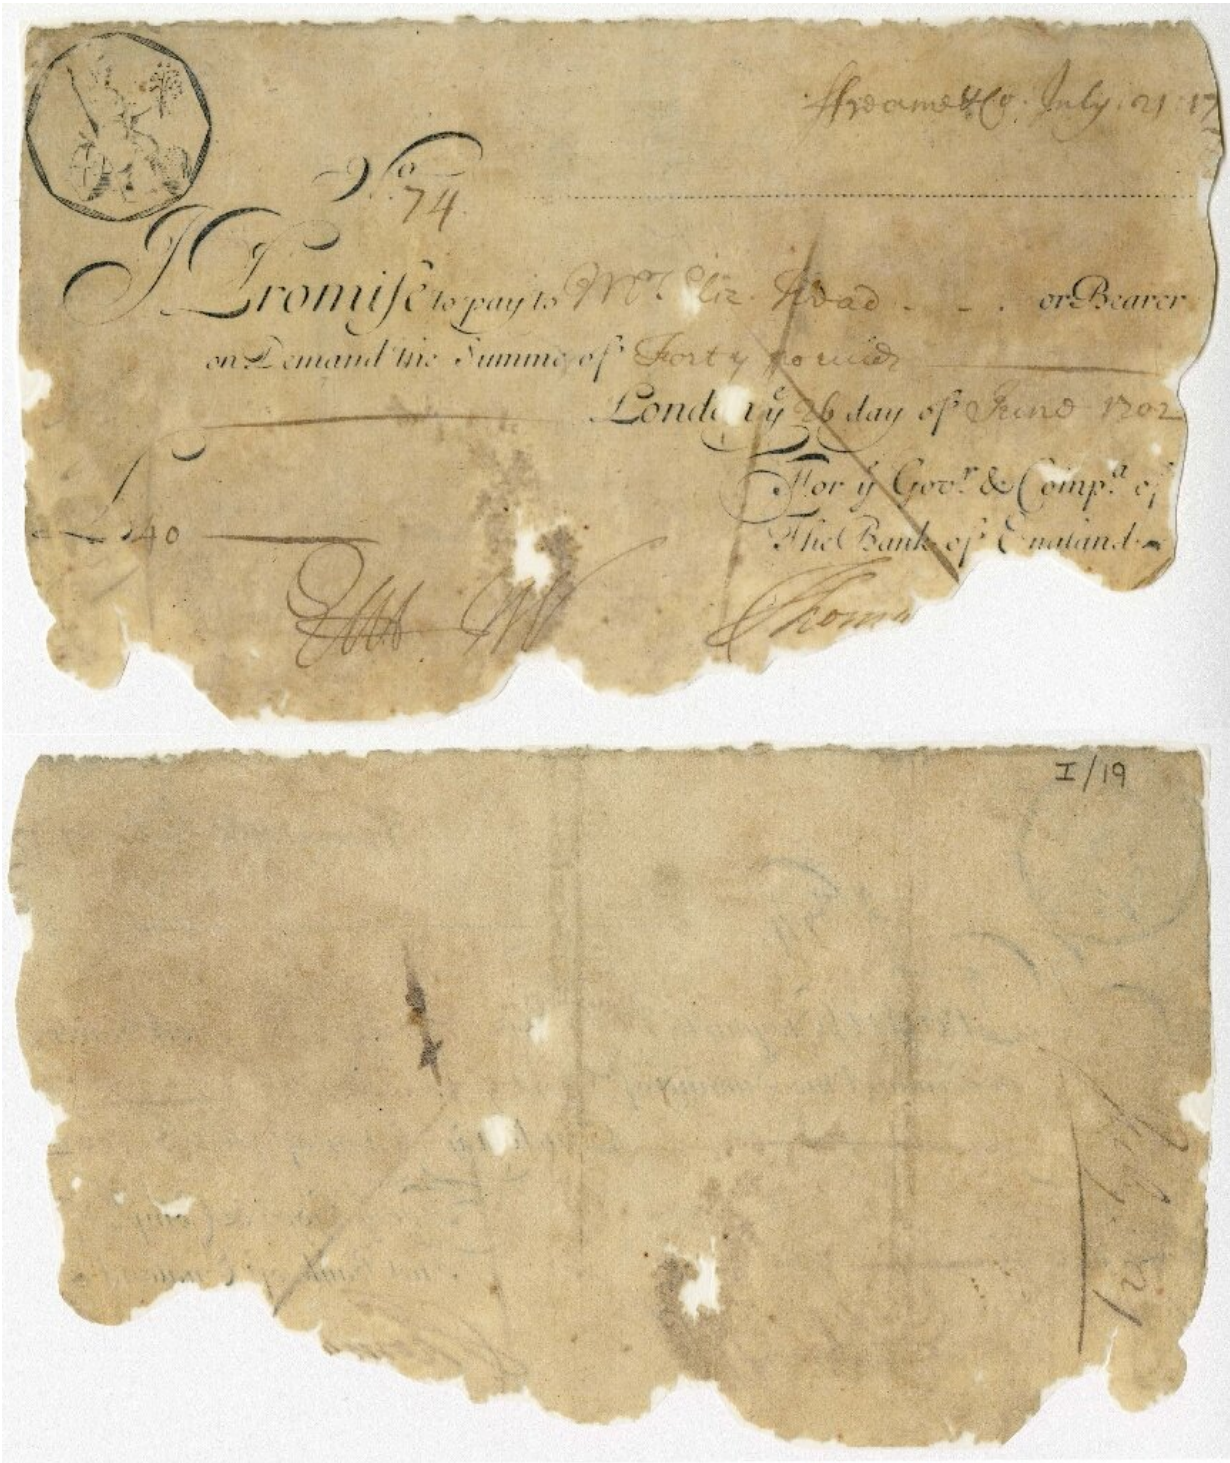 ffreame & Co. July. 21. 17
No
74
I Promise to pay to Mrs. Eliz. or Bearer
on Demand the Summe of Forty pounds
London ye 26 day of June 1702
For ye Govr. & Compa. of
£ 40
The Bank of England
Thoma
I/19
July 21